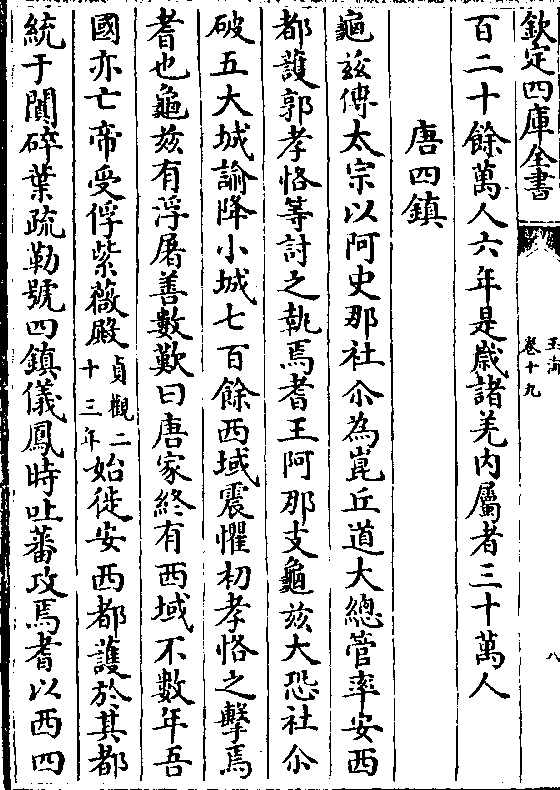 欽定四庫全書
玉海
卷十九
八
百二十餘萬人六年是歲諸羌内屬者三十萬人
唐四鎮
龜兹傳太宗以阿史那社尒為崑丘道大總管率安西
都護郭孝恪等討之執焉耆王阿那支龜兹大恐社尒
破五大城諭降小城七百餘西域震懼初孝恪之擊焉
耆也龜兹有浮屠善數歎曰唐家終有西域不數年吾
國亦亡帝受俘紫薇殿貞觀二十三年始徙安西都護於其都
統于闐碎葉疏勒號四鎮儀鳳時吐蕃攻焉耆以西四